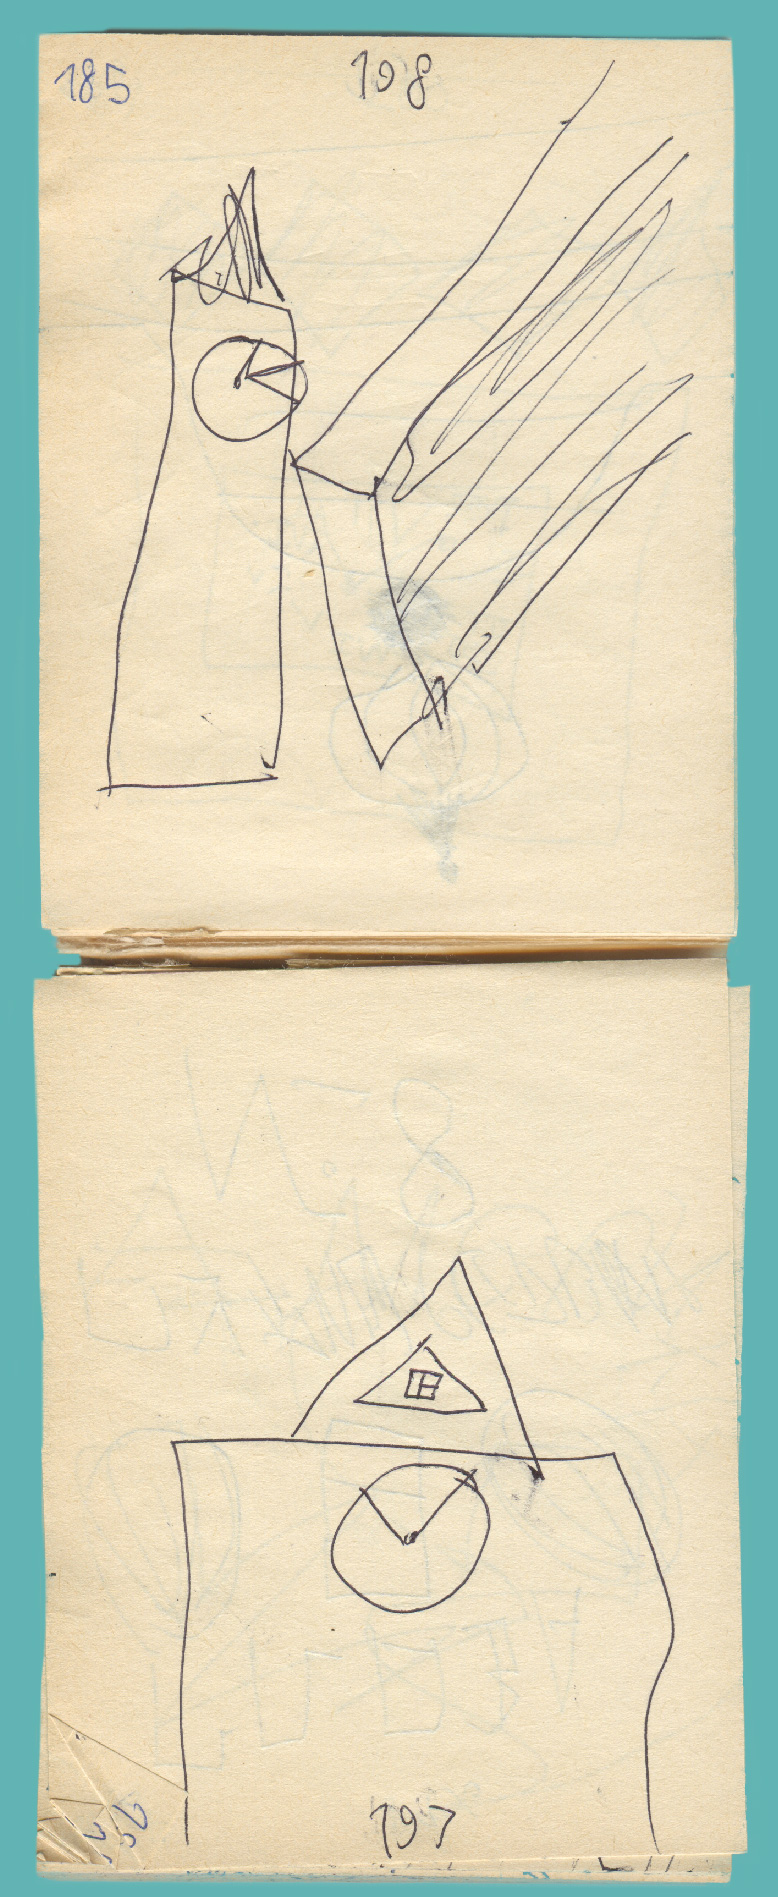 185 198
197